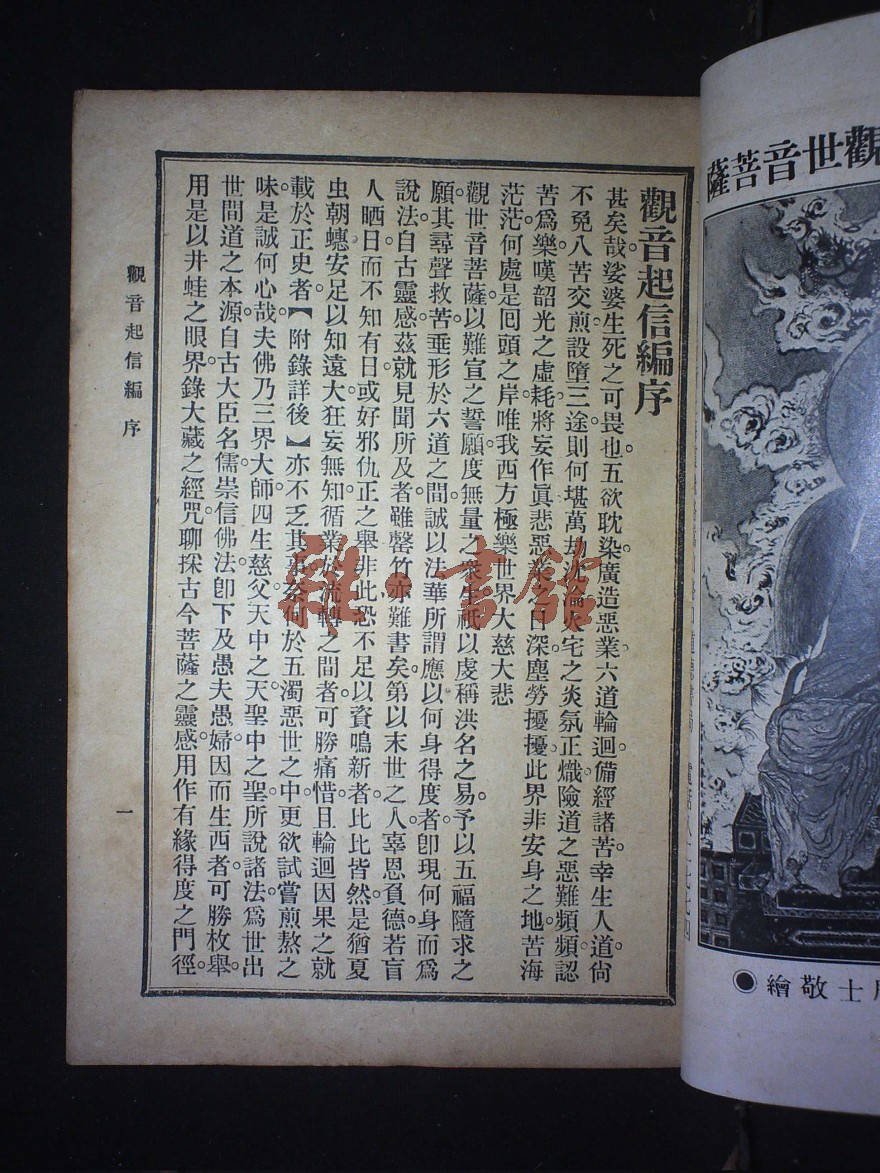 觀音起信編序
甚矣哉。娑婆生死之可畏也。五欲耽染。廣造惡業。六道輪迴。備經諸苦。幸生人道。尙
不免八苦交煎。設墮三途。則何堪萬劫沈淪。火宅之炎氛正熾。險道之惡難頻頻。認
苦爲樂。嘆韶光之虛耗。將妄作眞。悲惡業之日深。塵勞擾擾。此界非安身之地。苦海
茫茫。何處是囘頭之岸。唯我西方極樂世界大慈大悲
觀世音菩薩。以難宣之誓願。度無量之衆生。祇以虔稱洪名之易。予以五福隨求之
願。其尋聲救苦。垂形於六道之間。誠以法華所謂應以何身得度者。卽現何身而爲
說法。自古靈感。茲就見聞所及者。雖罄竹亦難書矣。第以末世之人。辜恩負德。若盲
人晒日。而不知有日。或好邪仇正之舉。非此恐不足以資鳴新者。比比皆然。是猶夏
虫朝蟪。安足以知遠大。狂妄無知。循業於流轉之間者。可勝痛惜。且輪迴因果之就
載於正史者【附錄詳後】亦不乏其事。奈何於五濁惡世之中。更欲試嘗煎熬之
味。是誠何心哉。夫佛乃三界大師。四生慈父。天中之天。聖中之聖。所說諸法。爲世出
世間道之本源。自古大臣名儒。崇信佛法。卽下及愚夫愚婦。因而生西者。可勝枚舉。
用是以井蛙之眼界。錄大藏之經咒。聊採古今菩薩之靈感。用作有緣得度之門徑。
觀音起信編 序
一
觀世音菩薩
士敬繪
雜·書館